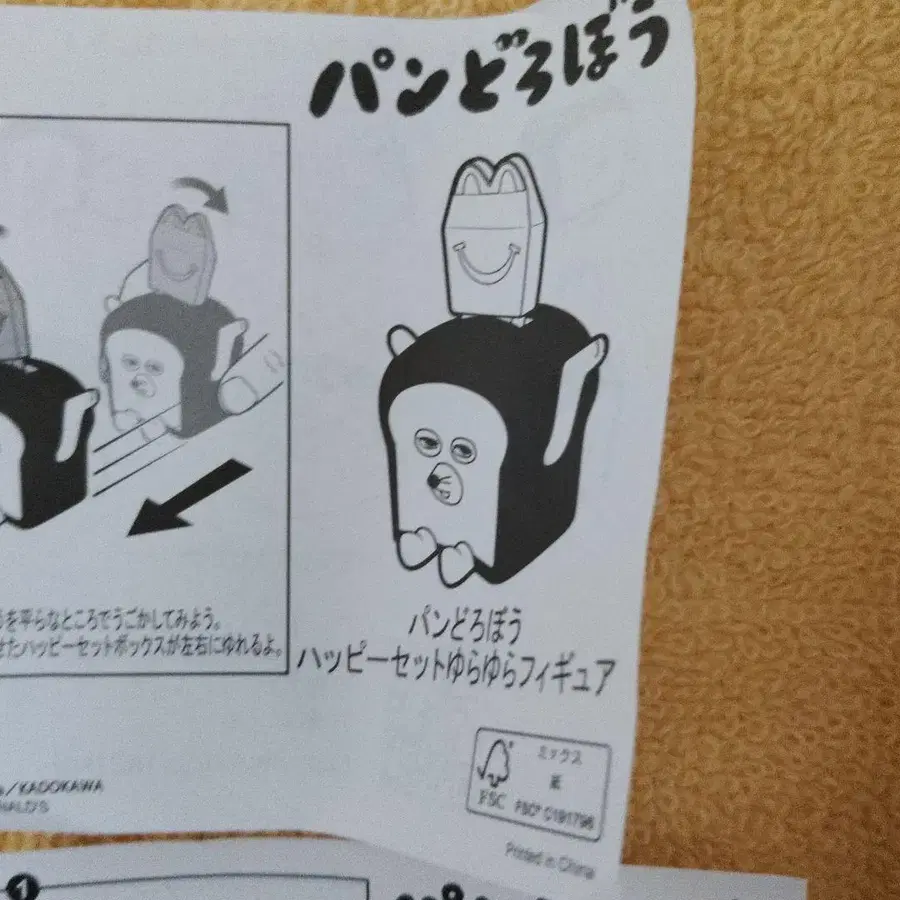 パンどろぼう
を平らなところでうごかしてみよう。
たハッピーセットボックスが左右にゆれるよ。
パンどろぼう
ハッピーセットゆらゆらフィギュア
/KADOKAWA
ミックス
紙
FSC
FSC® C191796
Printed in China
1